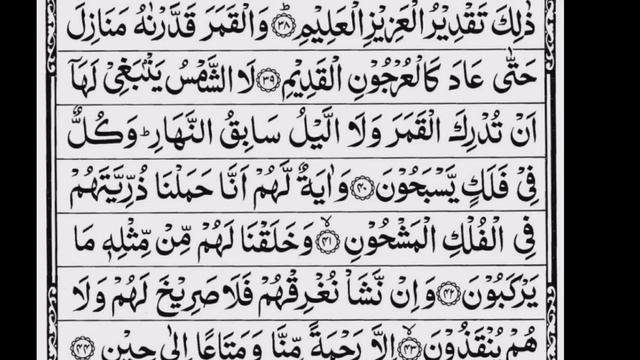 ذٰلِكَ تَقْدِيْرُ الْعَزِيْزِ الْعَلِيْمِ ؕ﴿۳۸﴾ وَالْقَمَرَ قَدَّرْنٰهُ مَنَازِلَ
حَتّٰى عَادَ كَالْعُرْجُوْنِ الْقَدِيْمِ ﴿۳۹﴾ لَا الشَّمْسُ يَنْۢبَغِىْ لَهَاۤ
اَنْ تُدْرِكَ الْقَمَرَ وَلَا الَّيْلُ سَابِقُ النَّهَارِ ؕ وَكُلٌّ
فِىْ فَلَكٍ يَّسْبَحُوْنَ ﴿۴۰﴾ وَاٰيَةٌ لَّهُمْ اَنَّا حَمَلْنَا ذُرِّيَّتَهُمْ
فِى الْفُلْكِ الْمَشْحُوْنِ ۙ﴿۴۱﴾ وَخَلَقْنَا لَهُمْ مِّنْ مِّثْلِهٖ مَا
يَرْكَبُوْنَ ﴿۴۲﴾ وَاِنْ نَّشَاْ نُغْرِقْهُمْ فَلَا صَرِيْخَ لَهُمْ وَلَا
هُمْ يُنْقَذُوْنَ ۙ﴿۴۳﴾ اِلَّا رَحْمَةً مِّنَّا وَمَتَاعًا اِلٰى حِيْنٍ ﴿۴۴﴾